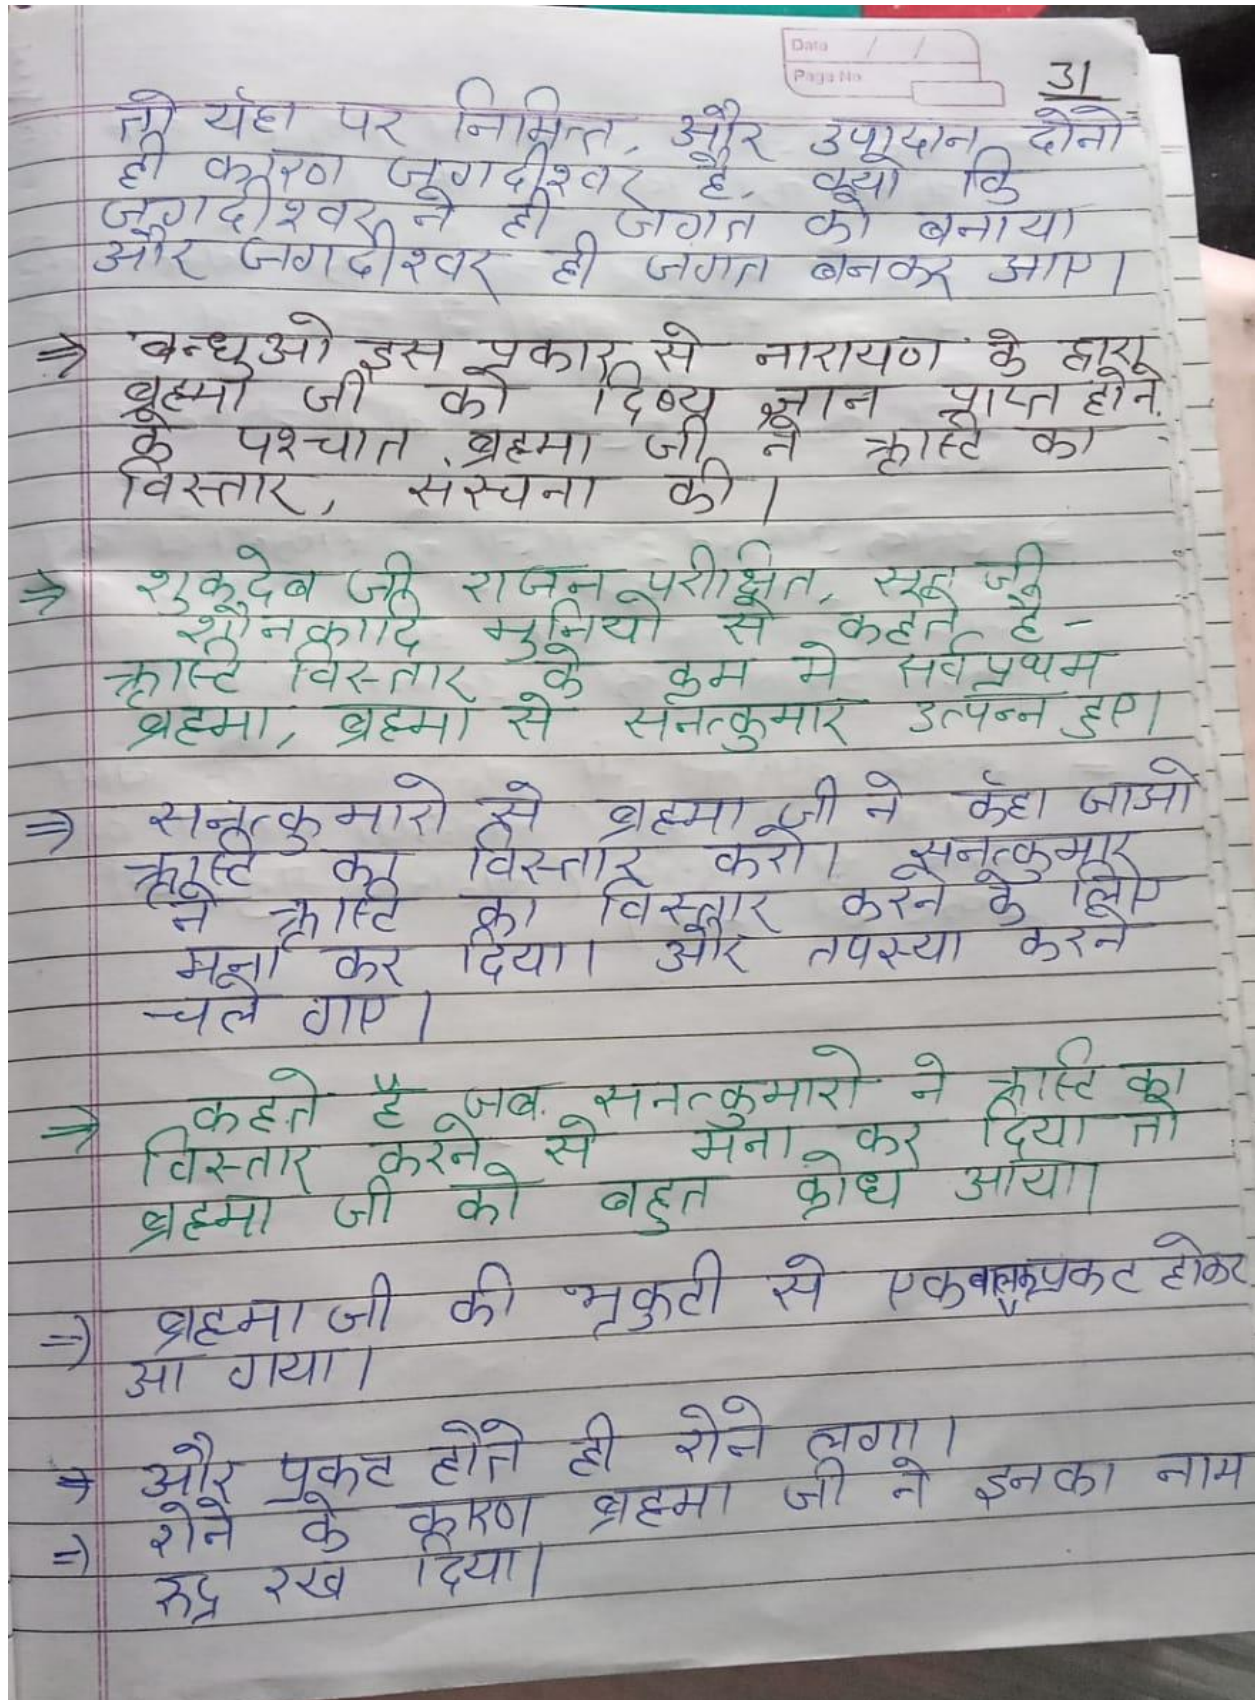 Date / /
Page No
31
तो यँहा पर निमित्त, और उपादान दोनो
ही कारण जगदीश्वर है, क्यो कि
जगदीश्वर ने ही जगत को बनाया
और जगदीश्वर ही जगत बनकर आए।
⇒ बन्धुओ इस प्रकार से नारायण के द्वारा
ब्रह्मा जी को दिव्य ज्ञान प्राप्त होने
के पश्चात ब्रह्मा जी ने सृष्टि का
विस्तार, संरचना की।
⇒ शुकदेब जी राजन परीक्षित, सूत जी
शौनकादि मुनियो से कहते है -
सृष्टि विस्तार के क्रम मे सर्वप्रथम
ब्रह्मा, ब्रह्मा से सनत्कुमार उत्पन्न हुए।
⇒ सनत्कुमारो से ब्रह्मा जी ने कँहा जाओ
सृष्टि का विस्तार करो। सनत्कुमार
ने सृष्टि का विस्तार करने के लिए
मना कर दिया। और तपस्या करने
चले गए।
⇒ कहते है जब सनत्कुमारो ने सृष्टि का
विस्तार करने से मना कर दिया तो
ब्रह्मा जी को बहुत क्रोध आया।
⇒ ब्रह्मा जी की भृकुटी से एक बालक प्रकट होकर
आ गया।
⇒ और प्रकट होते ही रोने लगा।
⇒ रोने के कारण ब्रह्मा जी ने इनका नाम
रुद्र रख दिया।